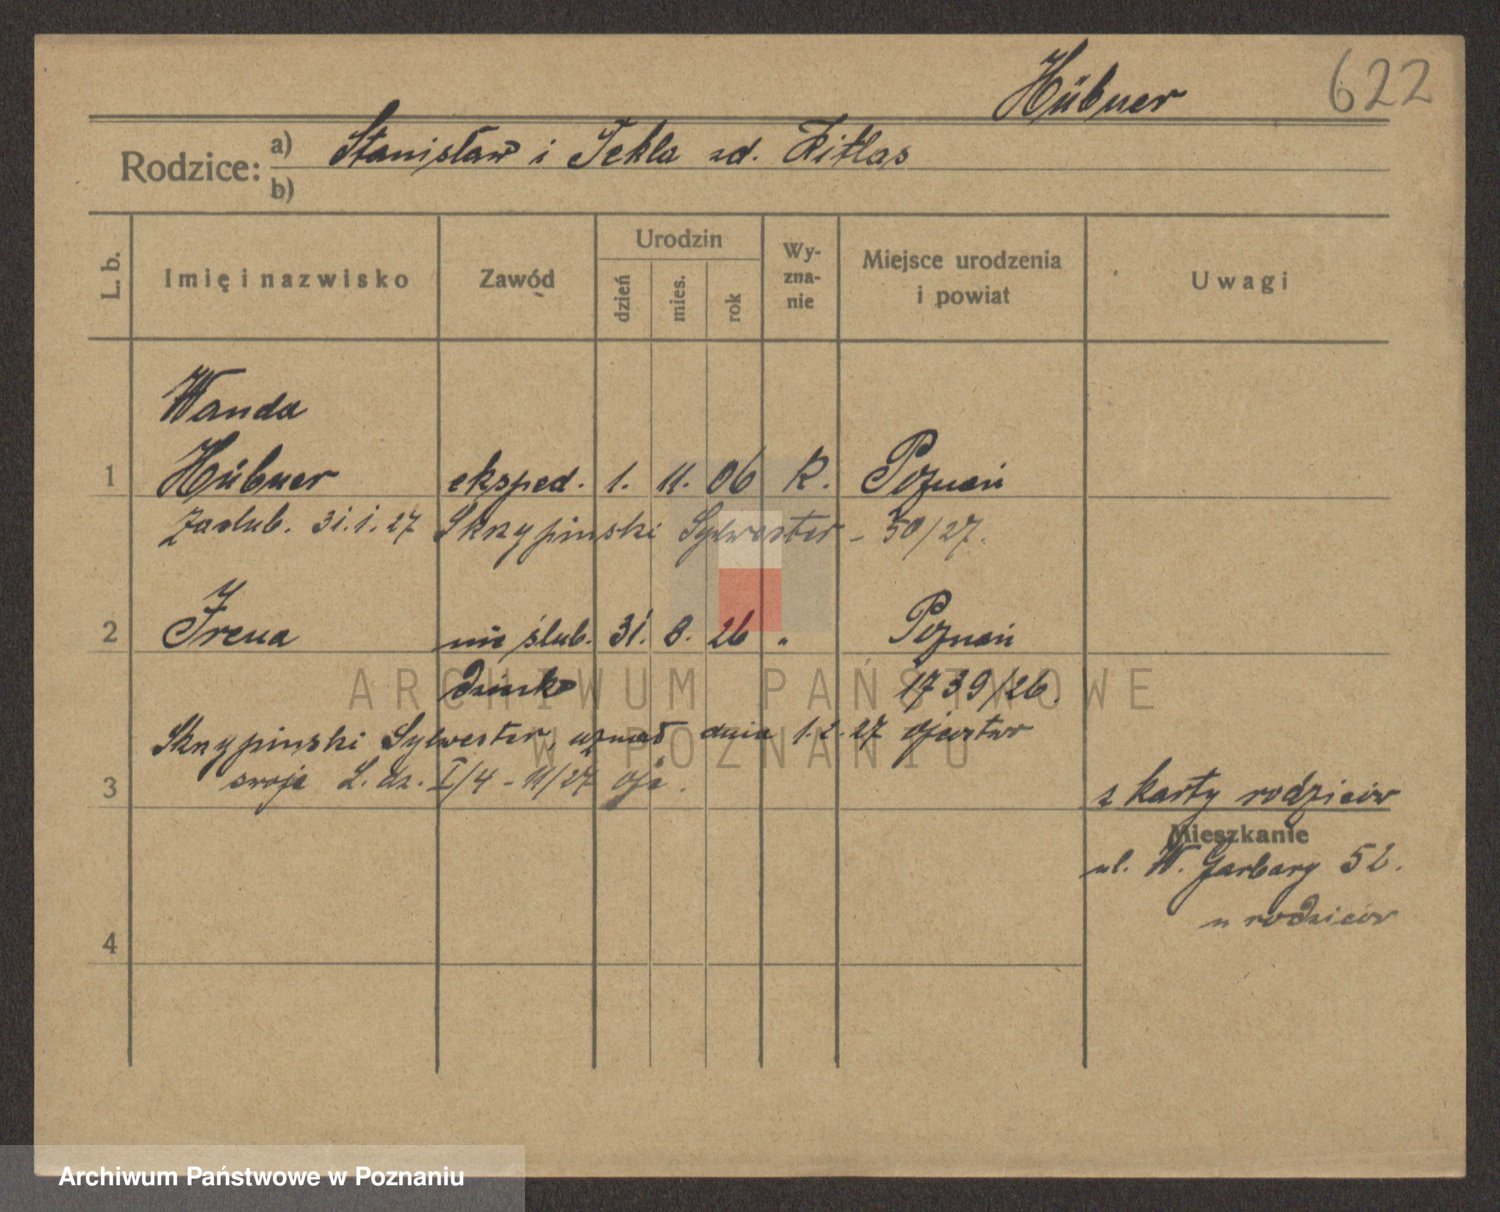 Hübner 622
Rodzice: a) Stanisław i Tekla zd. Zitlas
b)
L. b. Imię i nazwisko Zawód Urodzin dzień mies. rok Wy-zna-nie Miejsce urodzenia i powiat Uwagi
Wanda
1 Hübner eksped. 1. 11. 06 k. Poznań
Zaślub. 31.1.27 Skrzypinski Sylwester - 50/27.
2 Irena nie ślub. 31. 8. 26 " Poznań
dziecko 1739/26.
ARCHIWUM PAŃSTWOWE
W POZNANIU
Skrzypinski Sylwester, uznał dnia 1.2.27 ojcostwo
3 swoje L. dz. I/4 - 11/27
z karty rodziców
Mieszkanie
ul. W. Garbary 52.
u rodziców
4
Archiwum Państwowe w Poznaniu